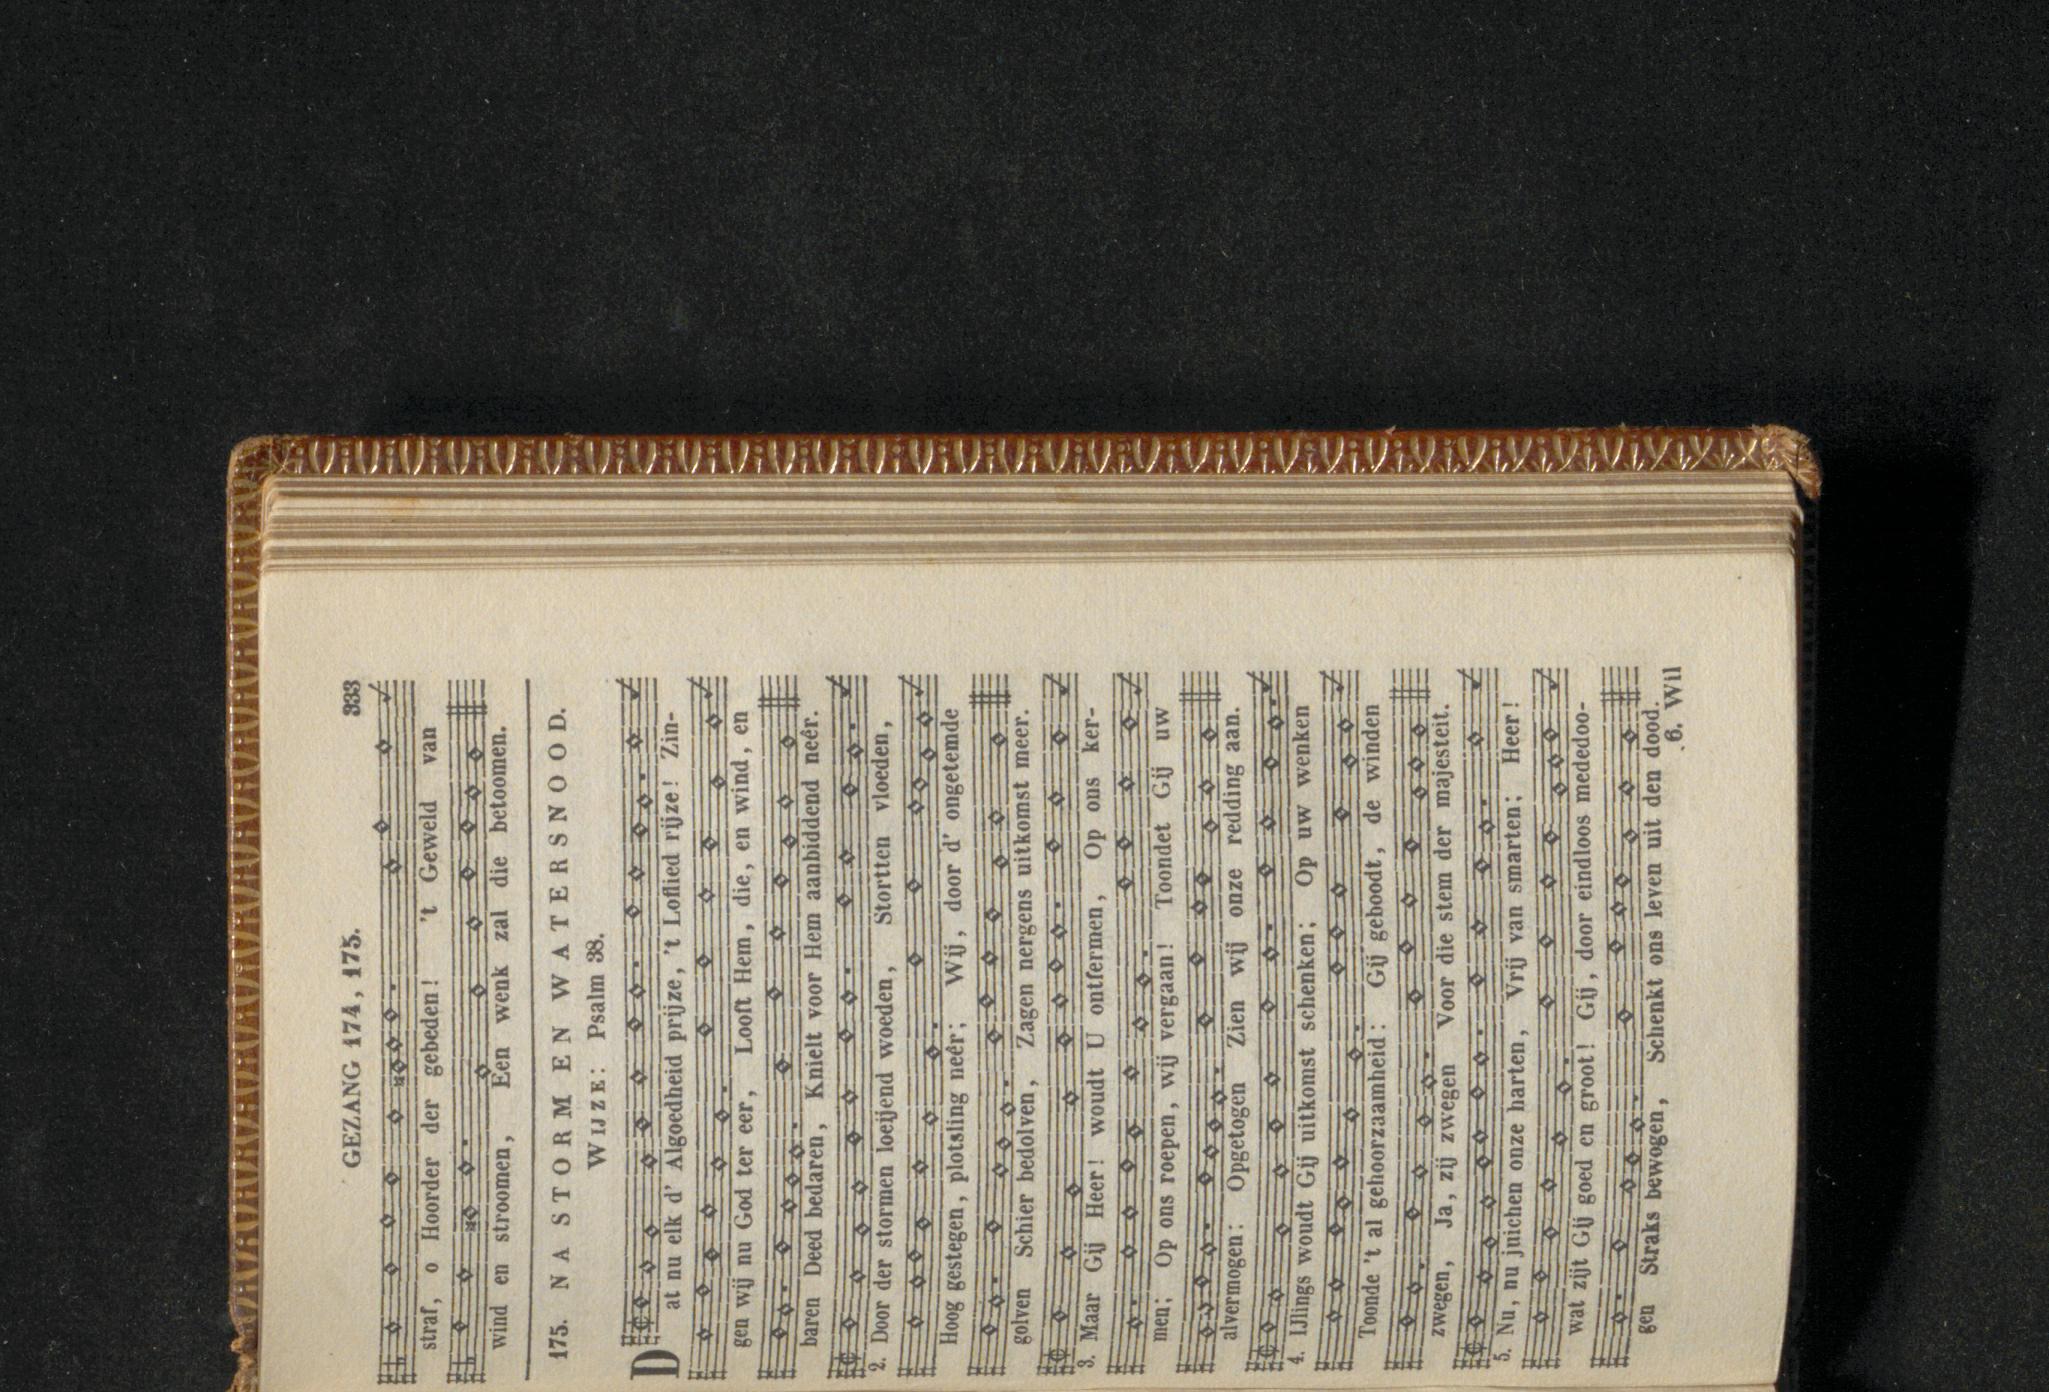 GEZANG 174, 175. 333
straf, o Hoorder der gebeden! 't Geweld van
wind en stroomen, Een wenk zal die betoomen.
175. NA STORM EN WATERSNOOD.
WIJZE: Psalm 38.
Dat nu elk d' Algoedheid prijze, 't Loflied rijze! Zin-
gen wij nu God ter eer, Looft Hem, die, en wind, en
baren Deed bedaren, Knielt voor Hem aanbiddend neêr.
2. Door der stormen loeijend woeden, Stortten vloeden,
Hoog gestegen, plotsling neêr; Wij, door d' ongetemde
golven Schier bedolven, Zagen nergens uitkomst meer.
3. Maar Gij Heer! woudt U ontfermen, Op ons ker-
men; Op ons roepen, wij vergaan! Toondet Gij uw
alvermogen: Opgetogen Zien wij onze redding aan.
4. IJlings woudt Gij uitkomst schenken; Op uw wenken
Toonde 't al gehoorzaamheid: Gij geboodt, de winden
zwegen, Ja, zij zwegen Voor die stem der majesteit.
5. Nu, nu juichen onze harten, Vrij van smarten; Heer!
wat zijt Gij goed en groot! Gij, door eindloos mededoo-
gen Straks bewogen, Schenkt ons leven uit den dood.
6. Wil